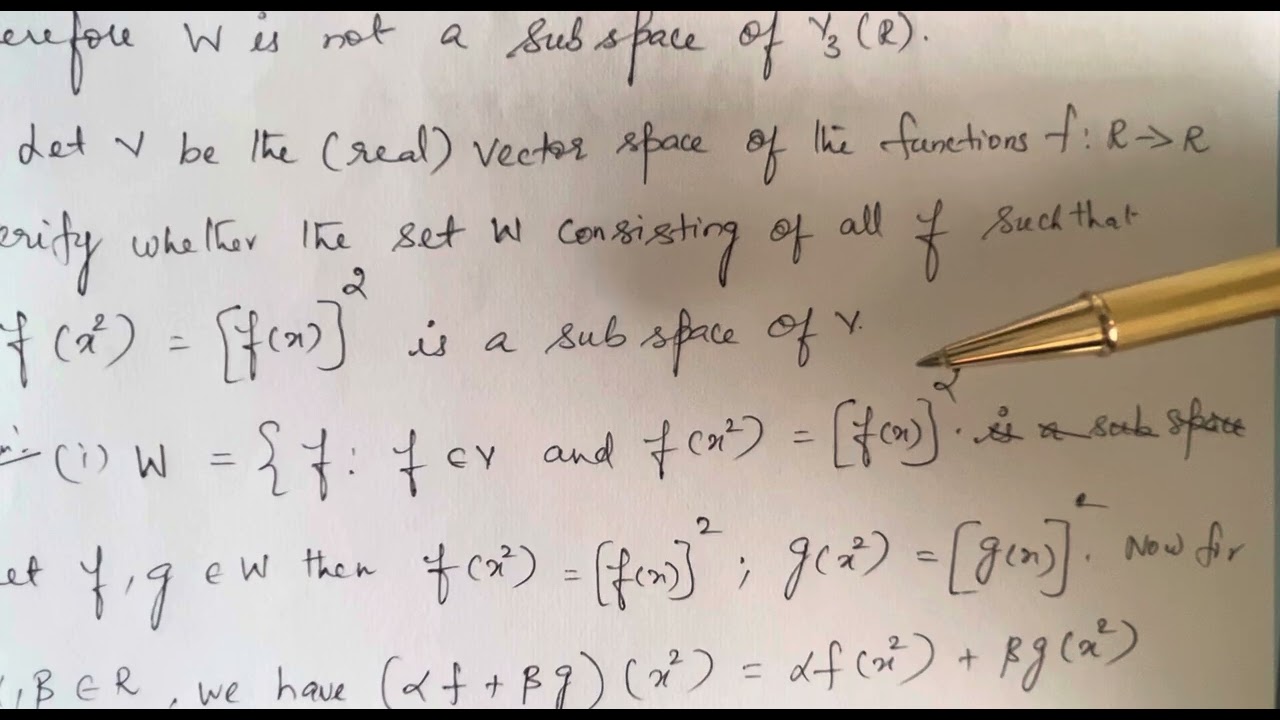 erefore W is not a sub space of V₃(R).
Let V be the (real) vector space of the functions f: R → R
erify whether the set W consisting of all f such that
f(x²) = [f(x)]² is a sub space of V.
(i) W = { f : f ∈ V and f(x²) = [f(x)]². is a sub space
et f, g ∈ W then f(x²) = [f(x)]² ; g(x²) = [g(x)]². Now for
, β ∈ R, we have (αf + βg)(x²) = αf(x²) + βg(x²)